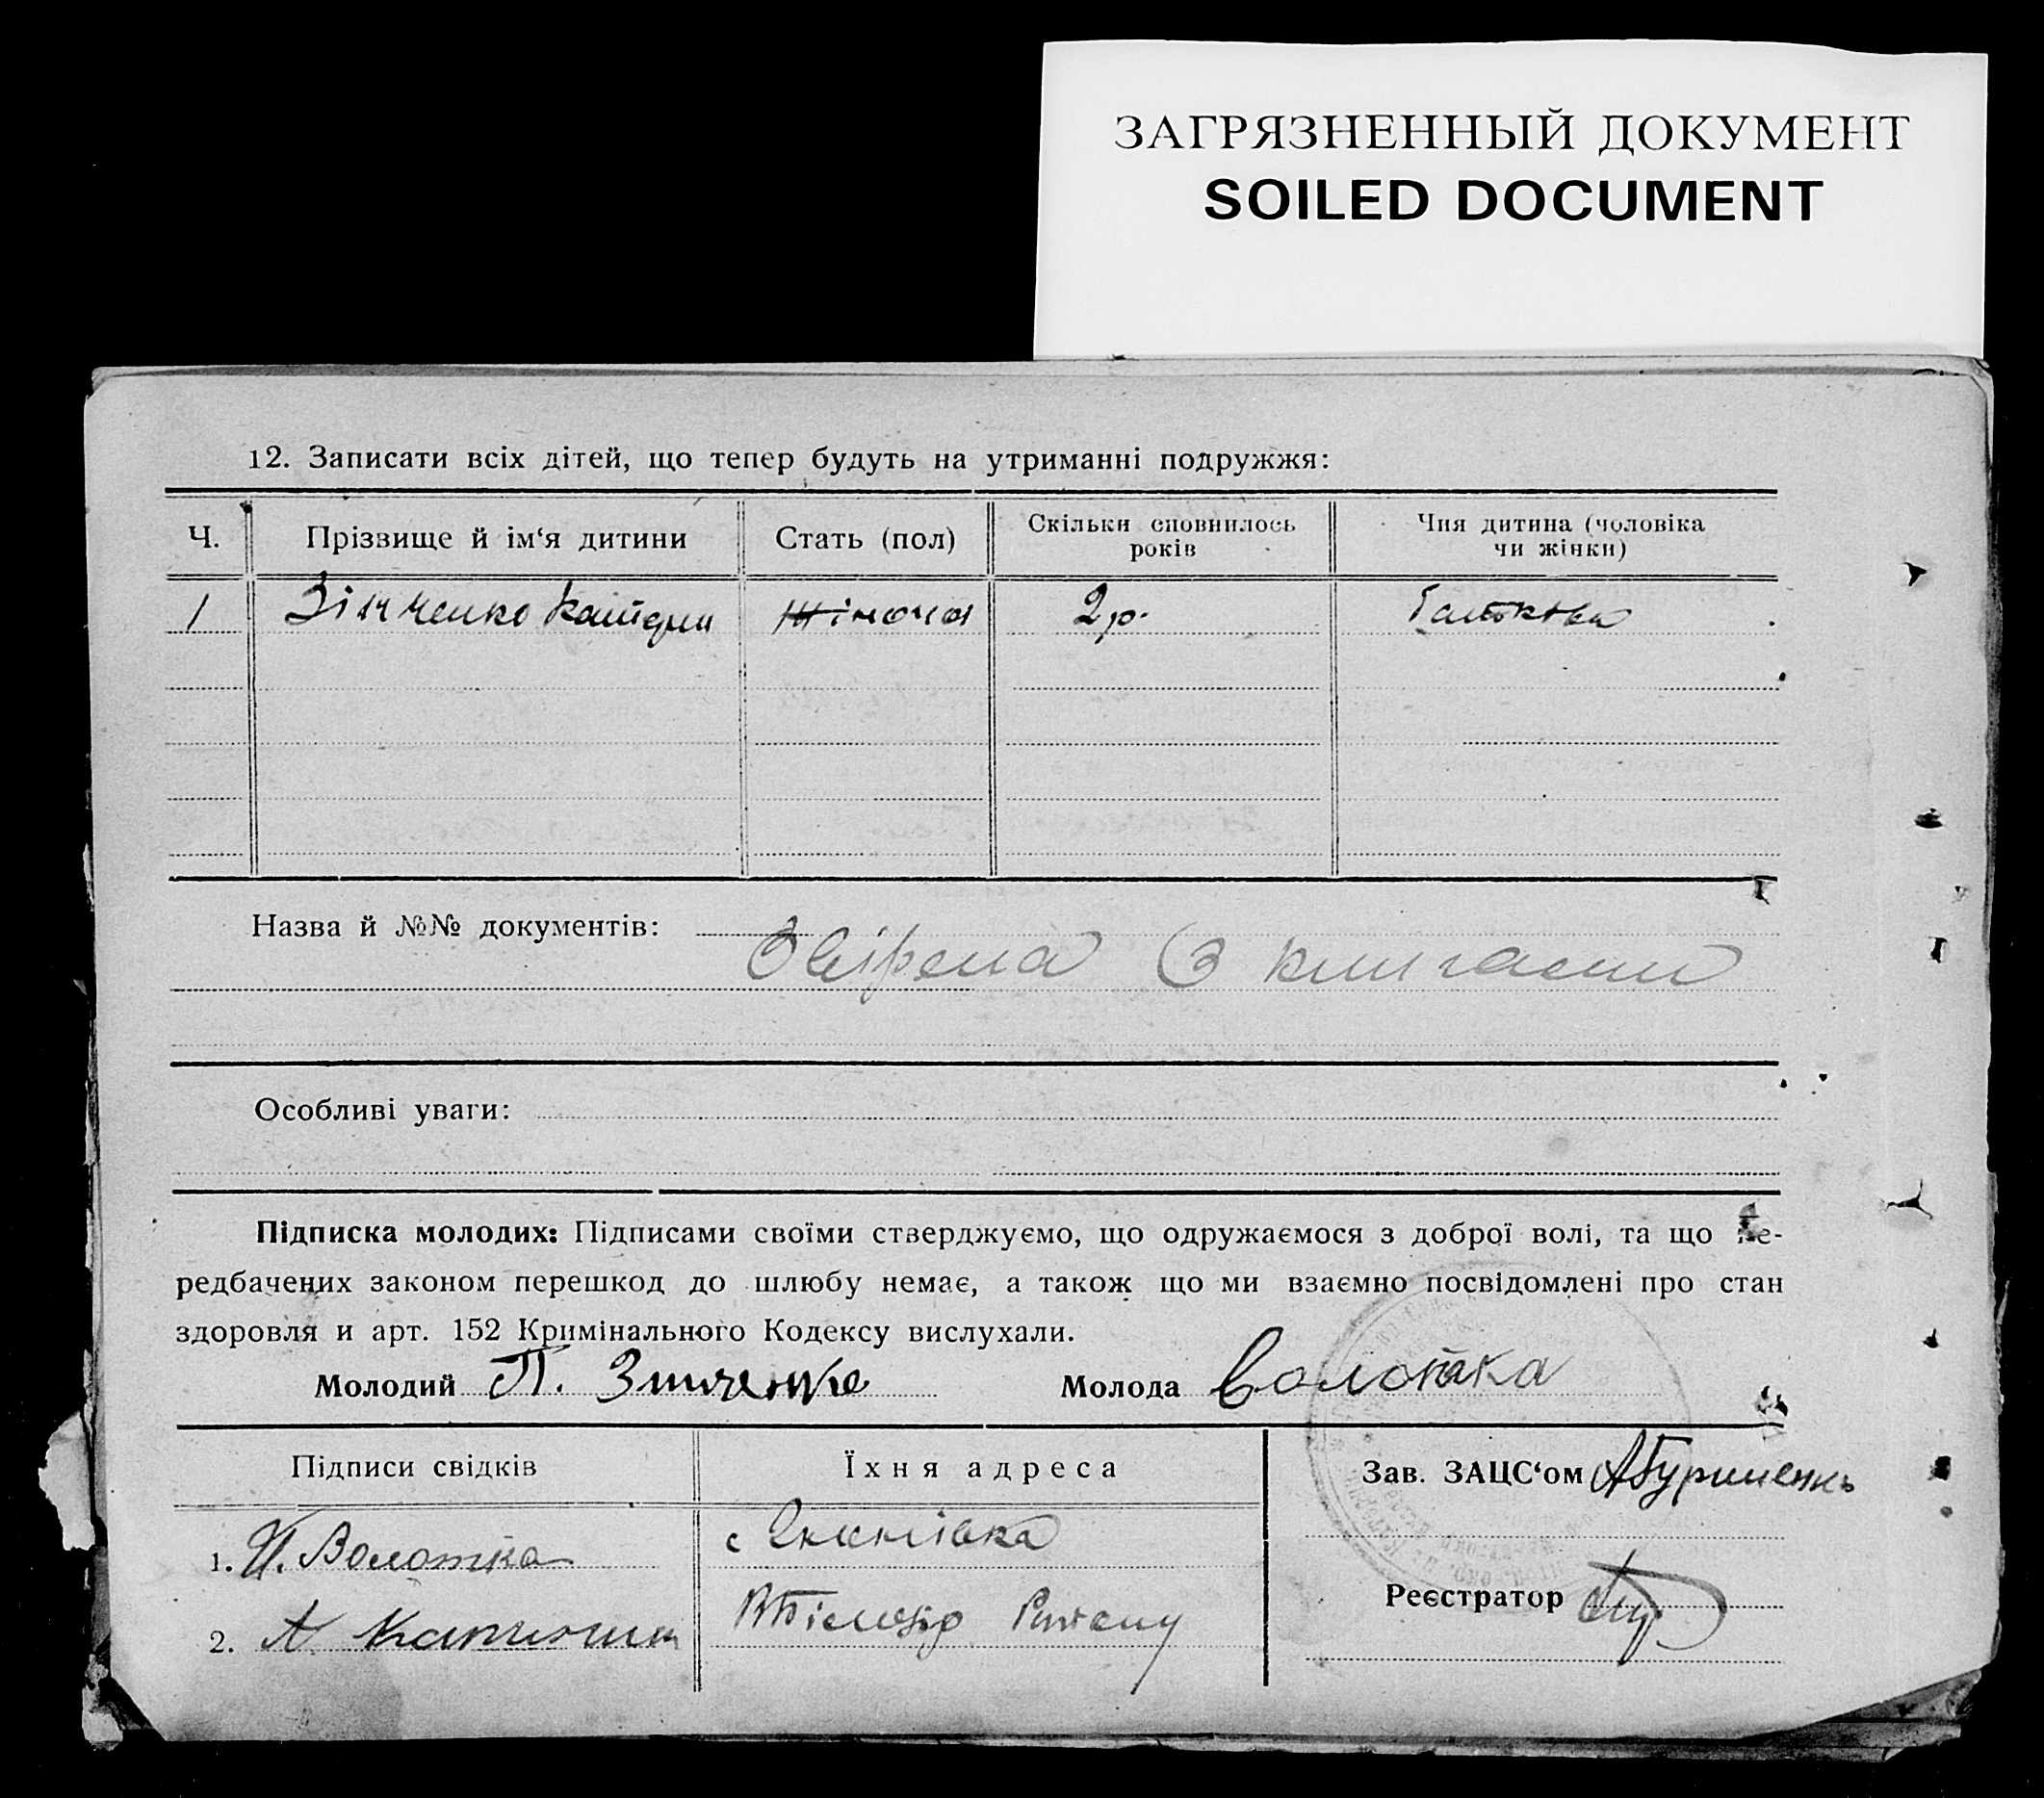 ЗАГРЯЗНЕННЫЙ ДОКУМЕНТ
SOILED DOCUMENT
12. Записати всіх дітей, що тепер будуть на утриманні подружжя:
Ч. Прізвище й ім‘я дитини Стать (пол) Скільки сповнилось років Чия дитина (чоловіка чи жінки)
1 Зінченко жіноча 2 р.
Назва й №№ документів:
Звірена з книгами
Особливі уваги:
Підписка молодих: Підписами своїми стверджуємо, що одружаємося з доброї волі, та що пе-
редбачених законом перешкод до шлюбу немає, а також що ми взаємно посвідомлені про стан
здоровля и арт. 152 Кримінального Кодексу вислухали.
Молодий П. Зинченко Молода Волотка
Підписи свідків Їхня адреса Зав. ЗАЦС‘ом
1. И. Волотка с
2. А.
Реєстратор